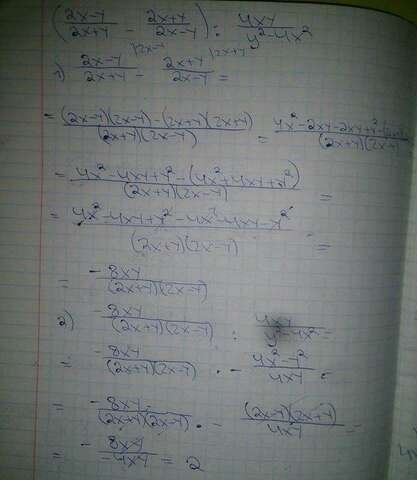 (2x-y/2x+y - 2x+y/2x-y) : 4xy/y²-4x²
1) 2x-y/2x+y |2x-y - 2x+y/2x-y |2x+y =
= (2x-y)(2x-y)-(2x+y)(2x+y)/(2x+y)(2x-y) = 4x²-2xy-2xy+y²-/(2x+y)(2x-
= 4x²-4xy+y²-(4x²+4xy+y²)/(2x+y)(2x-y) =
= 4x²-4xy+y²-4x²-4xy-y²/(2x+y)(2x-y) =
= -8xy/(2x+y)(2x-y)
2) -8xy/(2x+y)(2x-y) : 4xy/y²-4x² =
= -8xy/(2x+y)(2x-y) · - 4x²-y²/4xy =
= -8xy/(2x+y)(2x-y) · - (2x-y)(2x+y)/4xy =
= -8xy/-4xy = 2